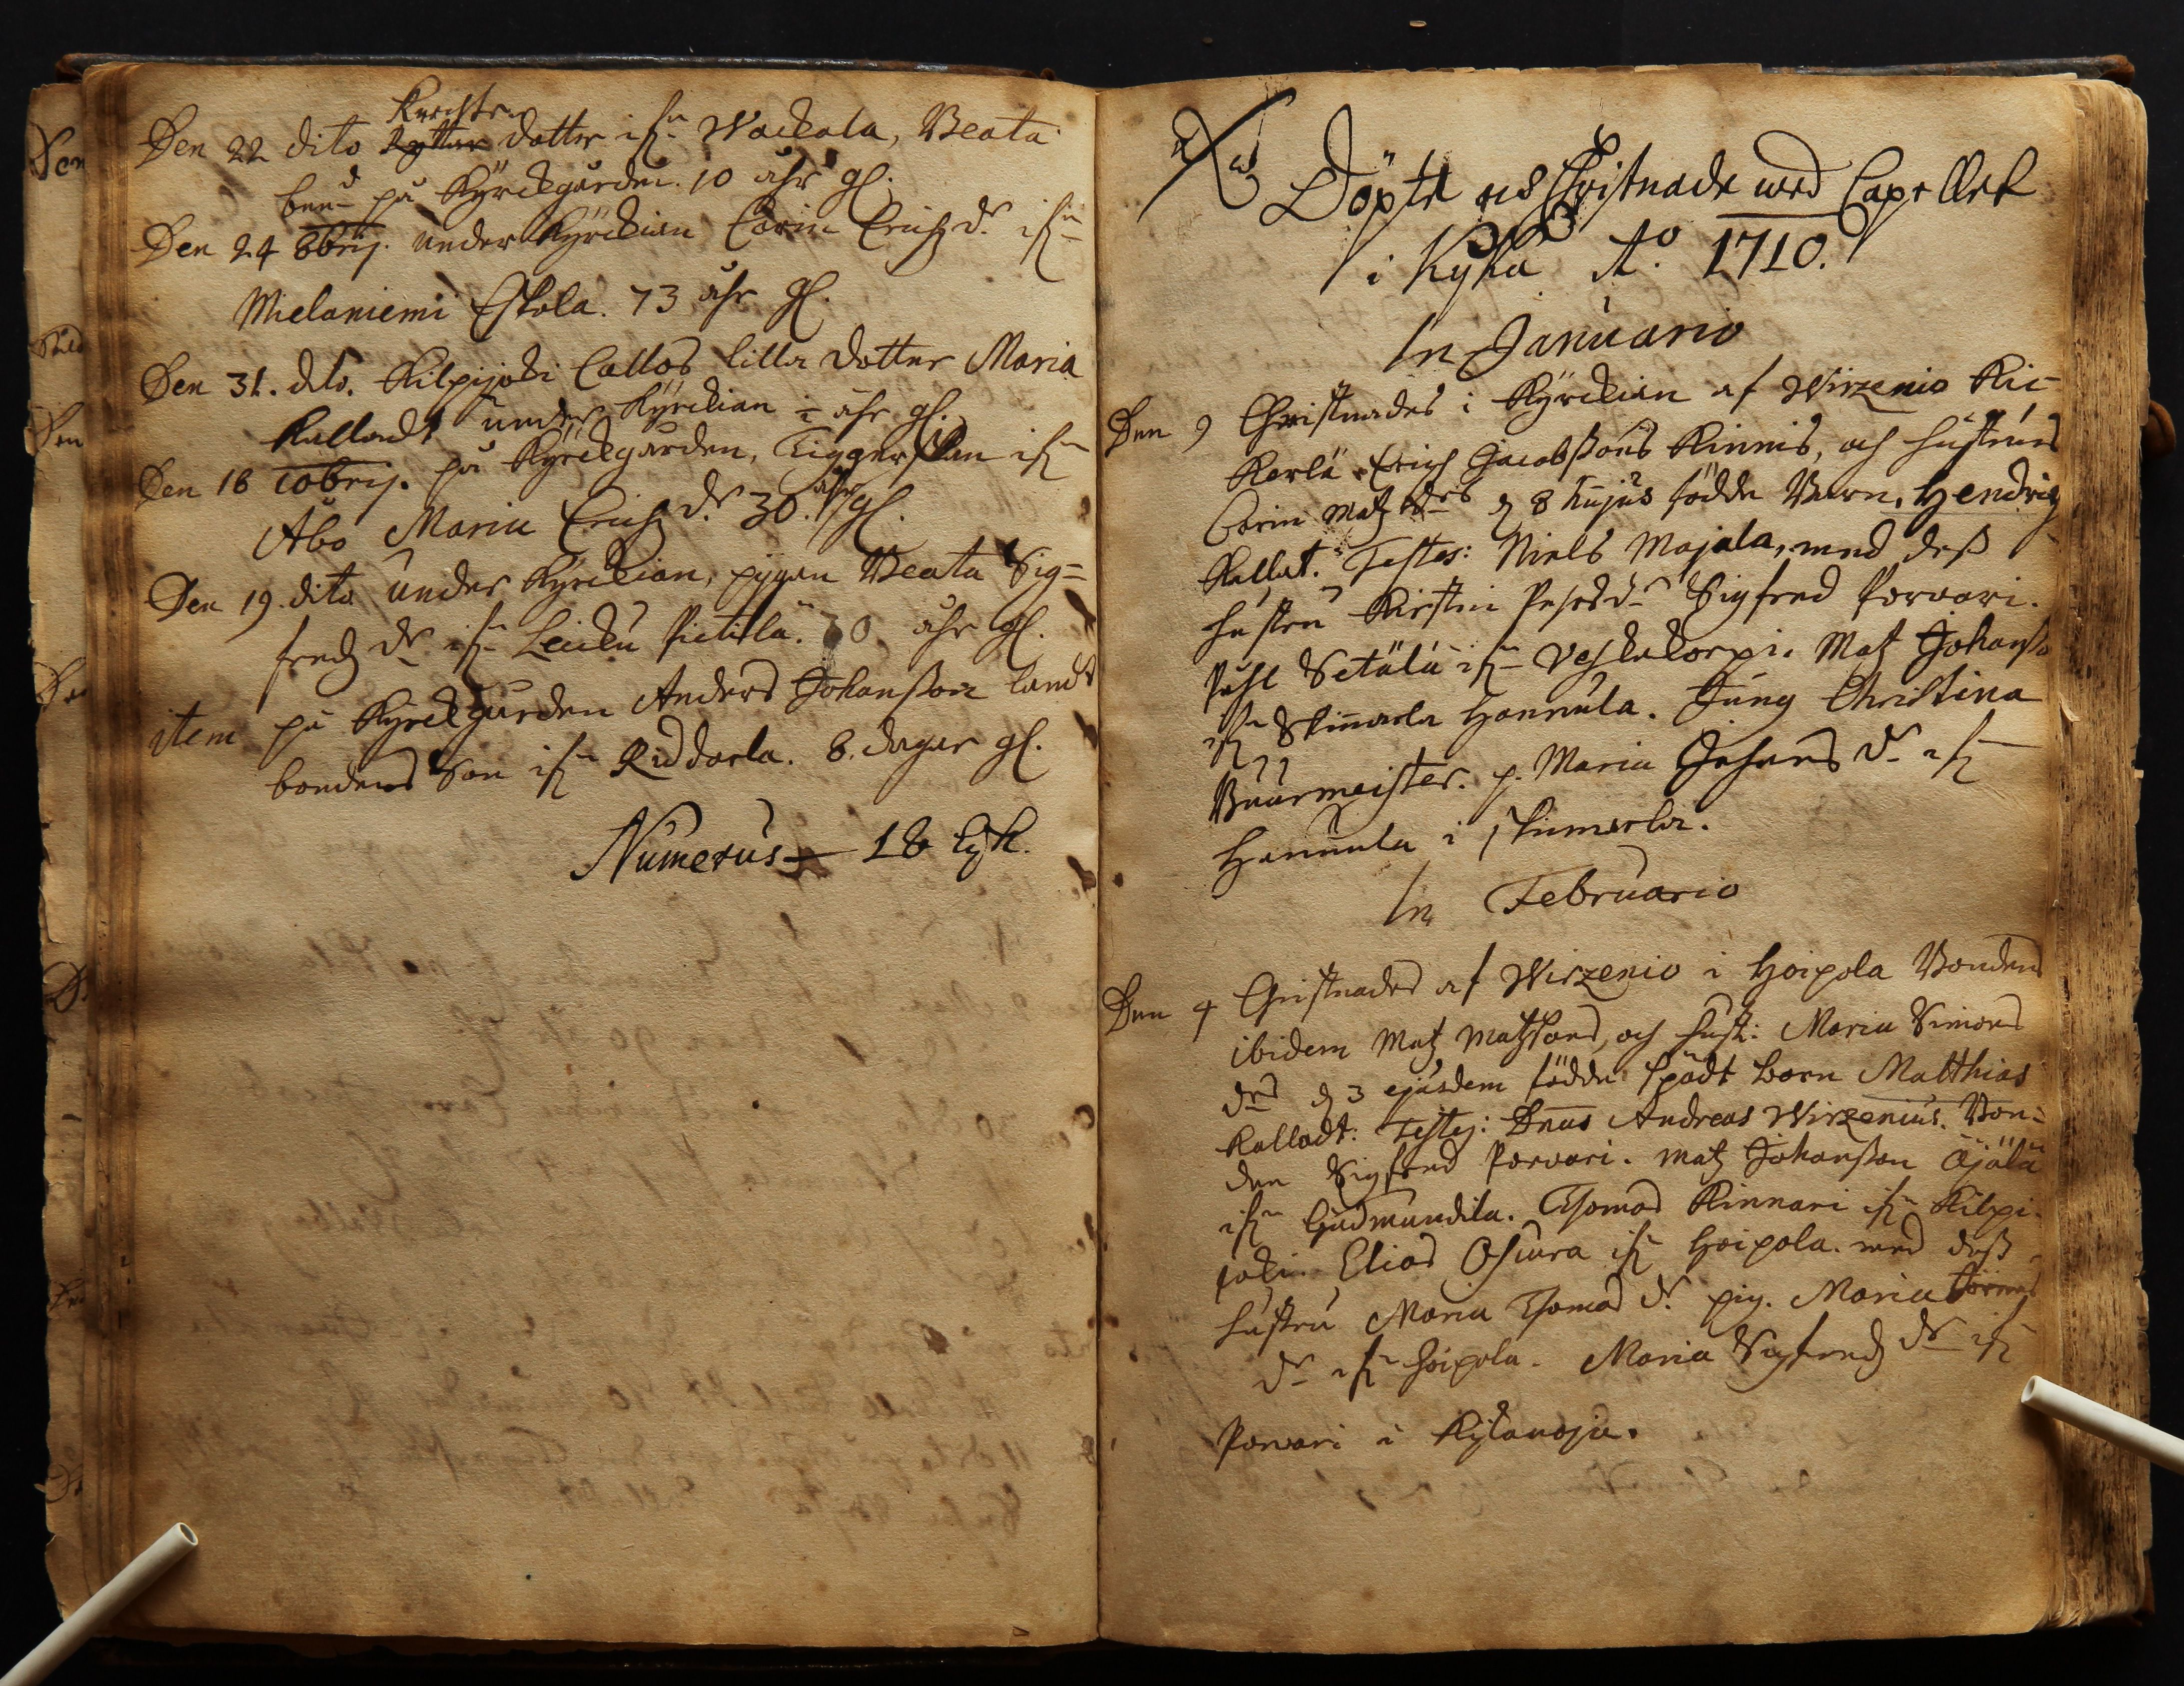 Den 22 dito Ryttar Knechts dotter ifrn Wackala, Beata
bend. på Kyrckgården. 10 åhr gl.
Den 24 8brij. under Kyrckian Carin Erichz dr. ifrn
Mielaniemi Eskola. 73 åhr gl.
Den 31. dito. Kilpijoki Callos lilla dotter Maria
Kalladt under Kyrckian ½ åhr gl.
Den 18 10brij. på Kyrckgården, Tiggerskan ifrn
Åbo Maria Erichz dr. 30. åhr gl.
Den 19. dito under Kyrckian, pygan Beata Sig=
fredz dr ifrn Leicku Pietilä. 0 åhr gl.
item på Kyrckgården Anders Johansson landt
bondens Son ifrn Riddarla. 8. dagar gl.
Numerus 18 Lijk.
Döpte och Christnade wed Capellet
i Kyka Ao. 1710.
In Januario
Den 9 Christnades i Kyrckian af Wirzenio Kic=
Kerlä Erich Jacobßons Kinnis, och hustrus
Carin Matz drs d 8 hujus födde Barn, Hendrich
Kallat. Testes: Niels Majala, med deß
hustru Kirstin Pehrs dr Sigfred Porvari.
Påhl Setälä ifrn Veskekorpi. Matz Johanßo
ifrn Skinnarla Hannula. Jung Christina
Buurmeister. p. Maria Johans dr ifrn
Hannula i Skinnarla.
In Februario
Den 4 Christnades af Wirzenio i Hoipola Bondens
ibidem Matz Matzsons, och hust: Maria Simons
drs d 3 ejusdem födde spädt barn Matthias
Kalladt: Testes: Dnus Andreas Wirzenius. Bon=
den Sigfred Porvari. Matz Johanßon Äjälä
ifrn Gudmundila. Thomas Kinnari ifrn Kilpi=
joki. Elias ifrn Hoipola. med deß
hustru Maria Thomas dr. pig. Maria
dr ifrn Hoipola. Maria Sigfredz dr ifrn
Porvari i Kytänoja.